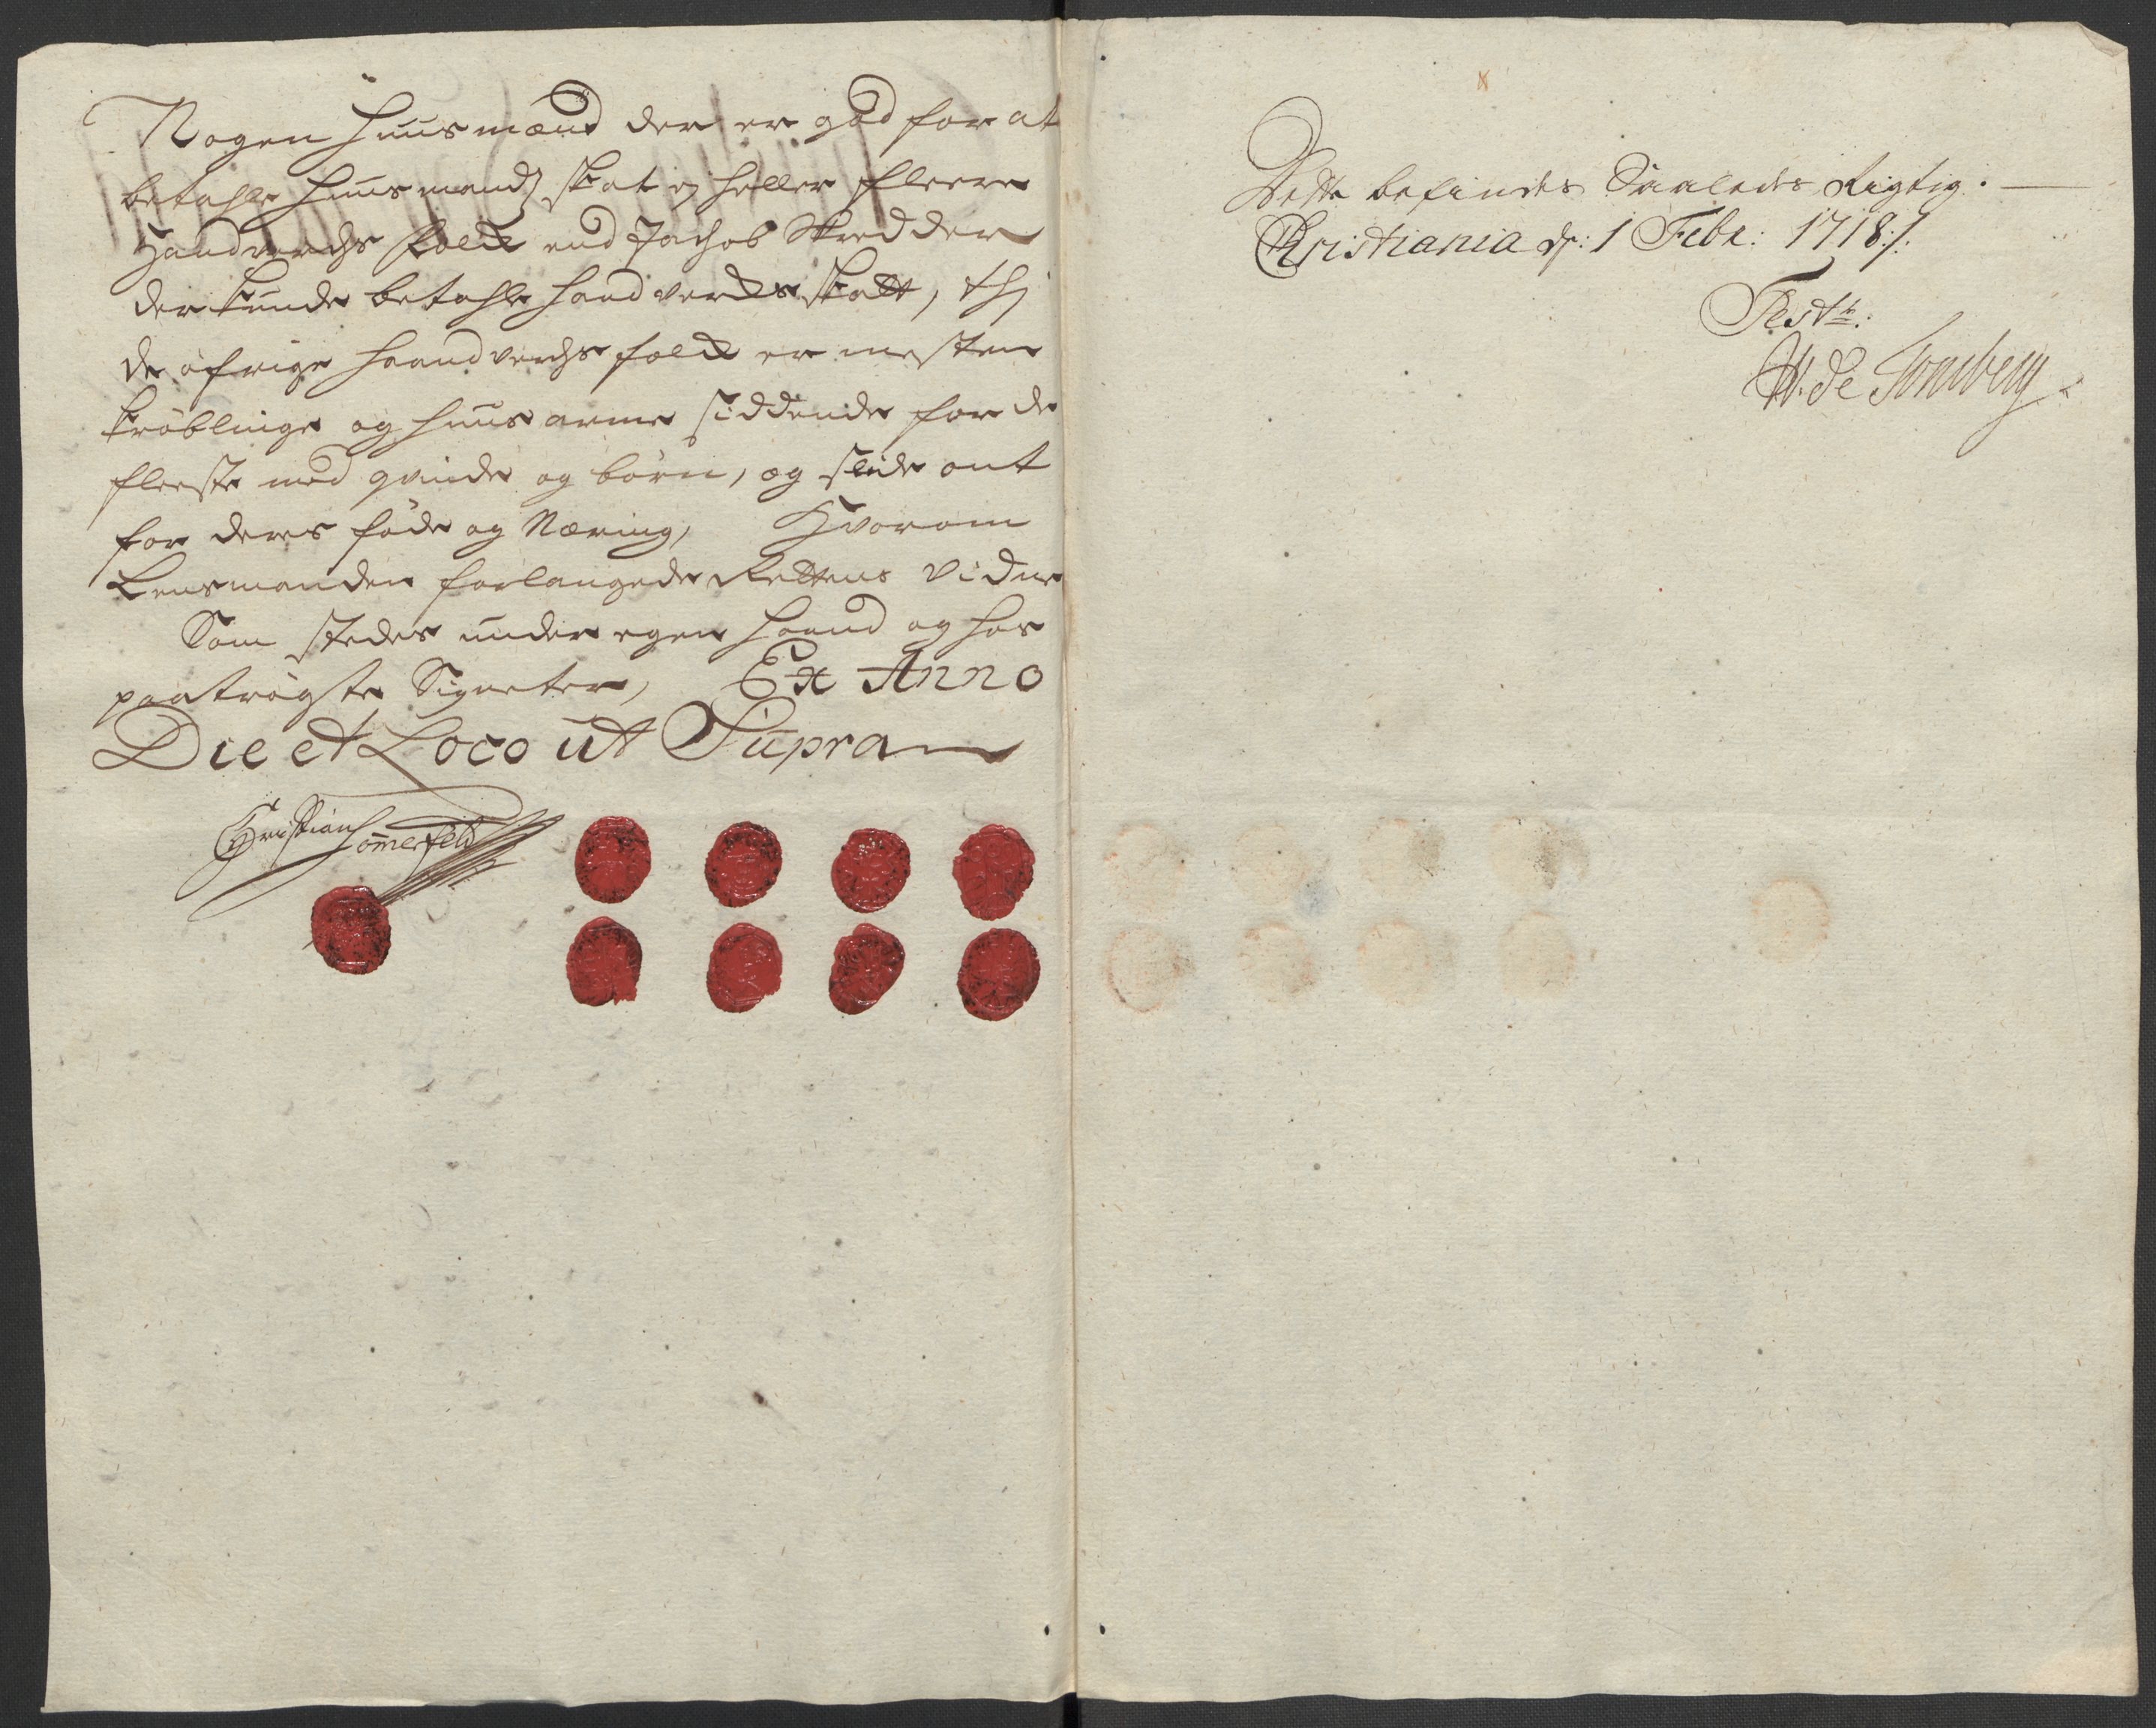 Nogen Huusmænd der er god for at
betahle Huusmands skat ej heller fleere
Handverchs folck end Jachob Skredder
der kunde betahle Haandvercks skatt, thj
de øfrige Haandverchs folck er mesten
krøblinge og Huusarme siddende for de
fleeste med qvinde og børn, og slide ont
for deres føde og Næring, Hvorom
Lensmanden forlangede Rettens vidne
Som stedes under egen Haand og hos
paatrøgte Signeter, Ex Anno
Die et Loco ut Supra
Christian Somerfeld
Dette befindes Saaledes Rigtig.
Christiania d: 1 Febr: 1718/.
Test:
W. de Tonsberg